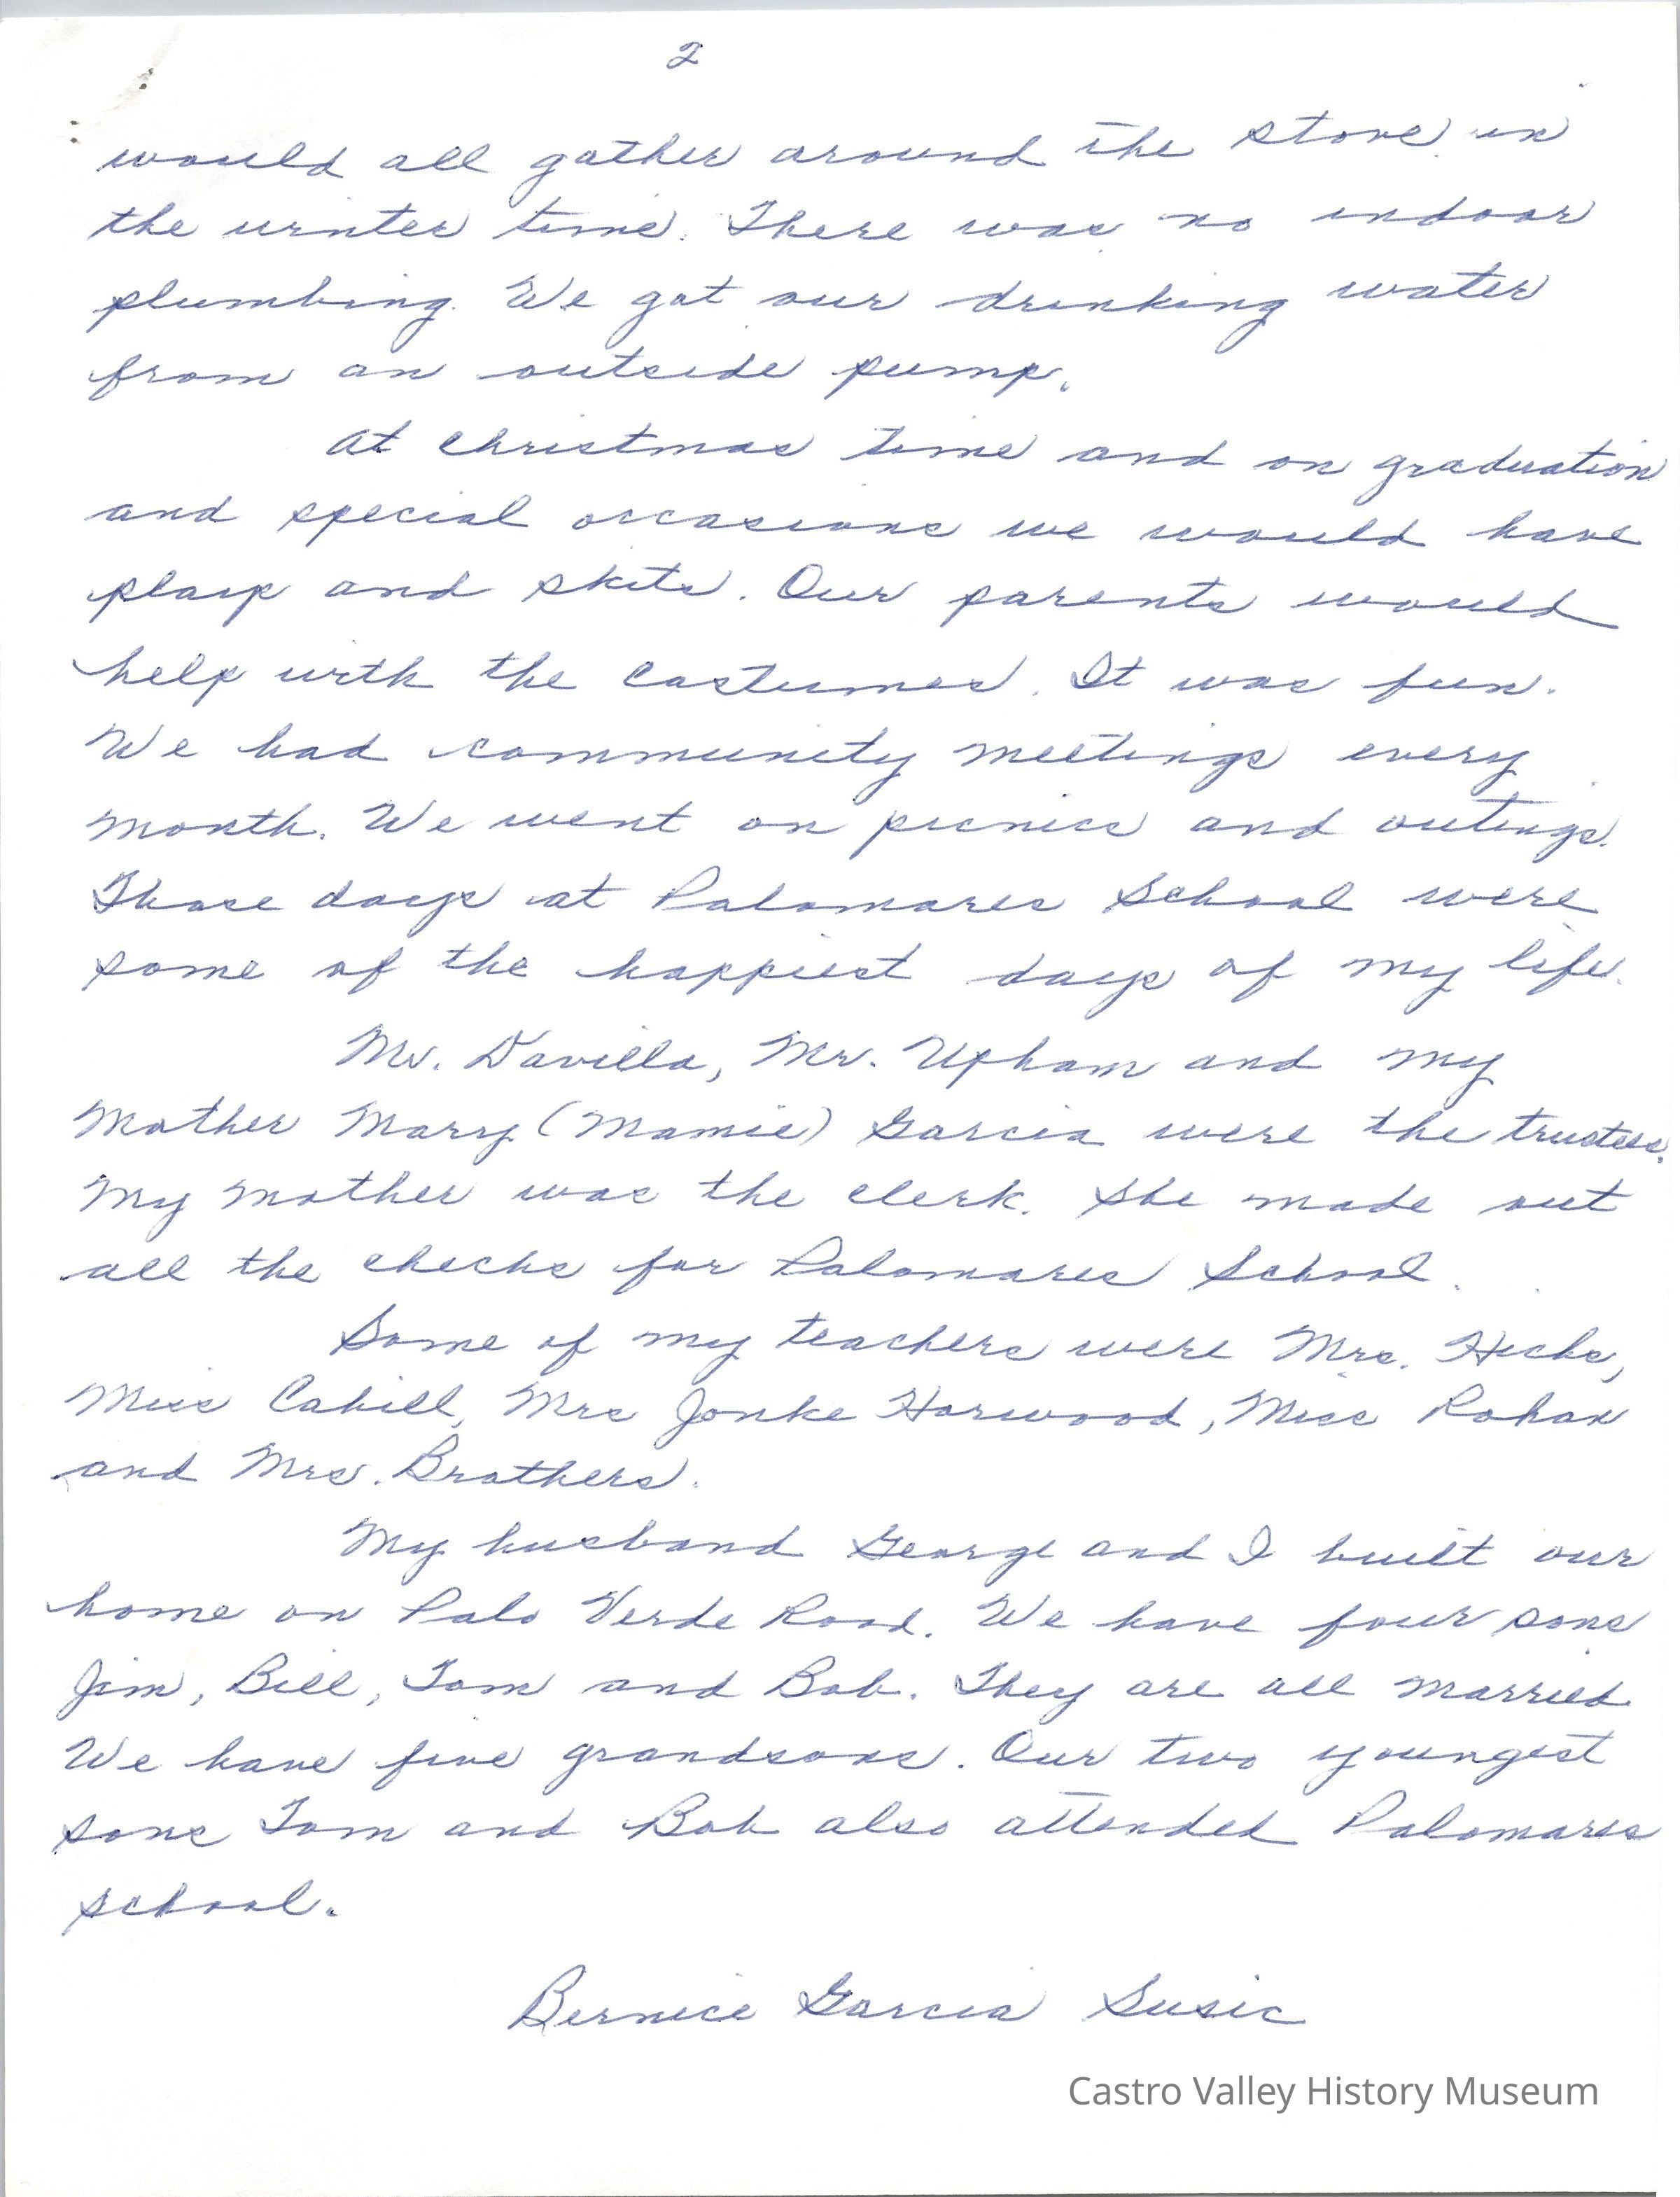 2
would all gather around the stove in
the winter time. There was no indoor
plumbing. We got our drinking water
from an outside pump.
At Christmas time and on graduation
and special occasions we would have
plays and skits. Our parents would
help with the costumes. It was fun.
We had community meetings every
month. We went on picnics and outings.
Those days at Palomares School were
some of the happiest days of my life.
Mr. Davilla, Mr. Upham and my
Mother Mary (Mamie) Garcia were the trustees.
My mother was the clerk. She made out
all the checks for Palomares School.
Some of my teachers were Mrs. Hicks,
Miss Cahill, Mrs Jonke Harwood, Miss Rohan
and Mrs. Brothers.
My husband George and I built our
home on Palo Verde Road. We have four sons
Jim, Bill, Tom and Bob. They are all married.
We have five grandsons. Our two youngest
sons Tom and Bob also attended Palomares
school.
Bernice Garcia Susic
Castro Valley History Museum